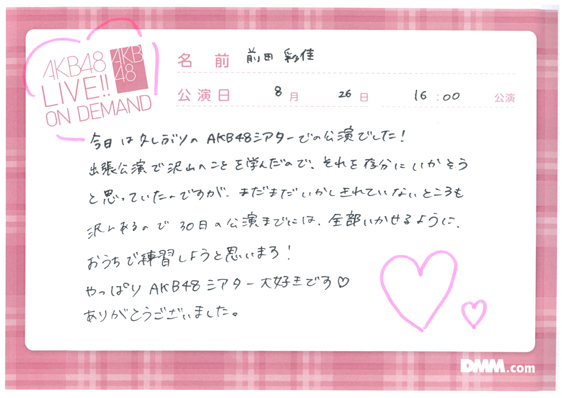 AKB48
LIVE!!
ON DEMAND
AKB
48
名前 前田 彩佳
公演日 8月 26日 16:00 公演
今日は久しぶりのAKB48シアターでの公演でした!
出張公演で沢山のことを学んだので、それを存分にいかそう
と思っていたのですが、まだまだいかしきれていないところも
沢山あるので30日の公演までには、全部いかせるように、
おうちで練習しようと思います!
やっぱりAKB48シアター大好きです♡
ありがとうございました。
DMM.com